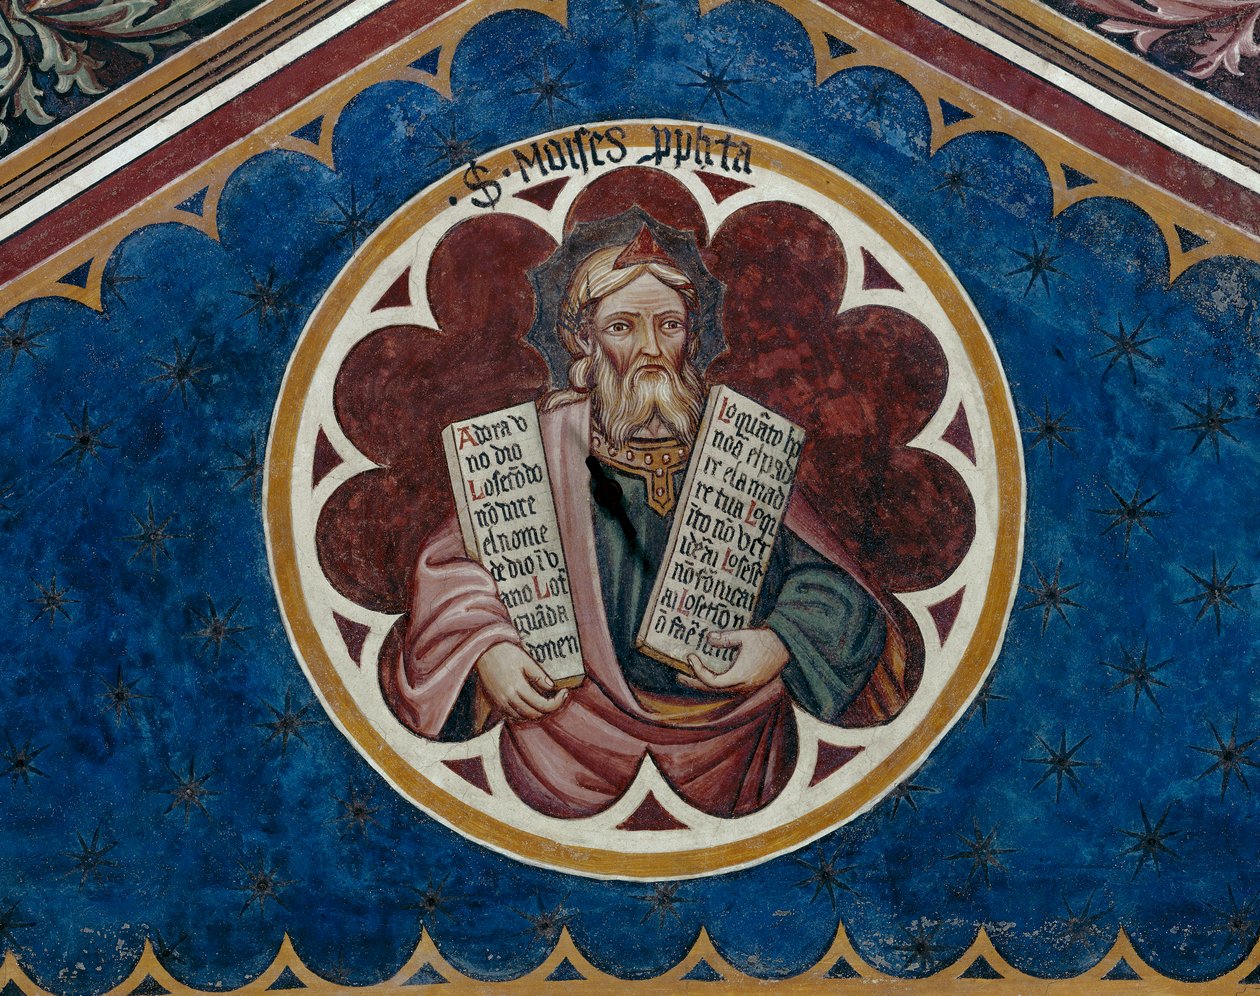 ·S· Moises pphta
Adora v
no dio
Losecōdo
nō dire
el nome
de dio ī v
ano Lot
quāda
Lo quāto hō
noā el padr
re el a mad
re tua Lo q
īto nō vci
dēai Lo sest
nō fōrnicar
ai Lo setō n
ō faē furte